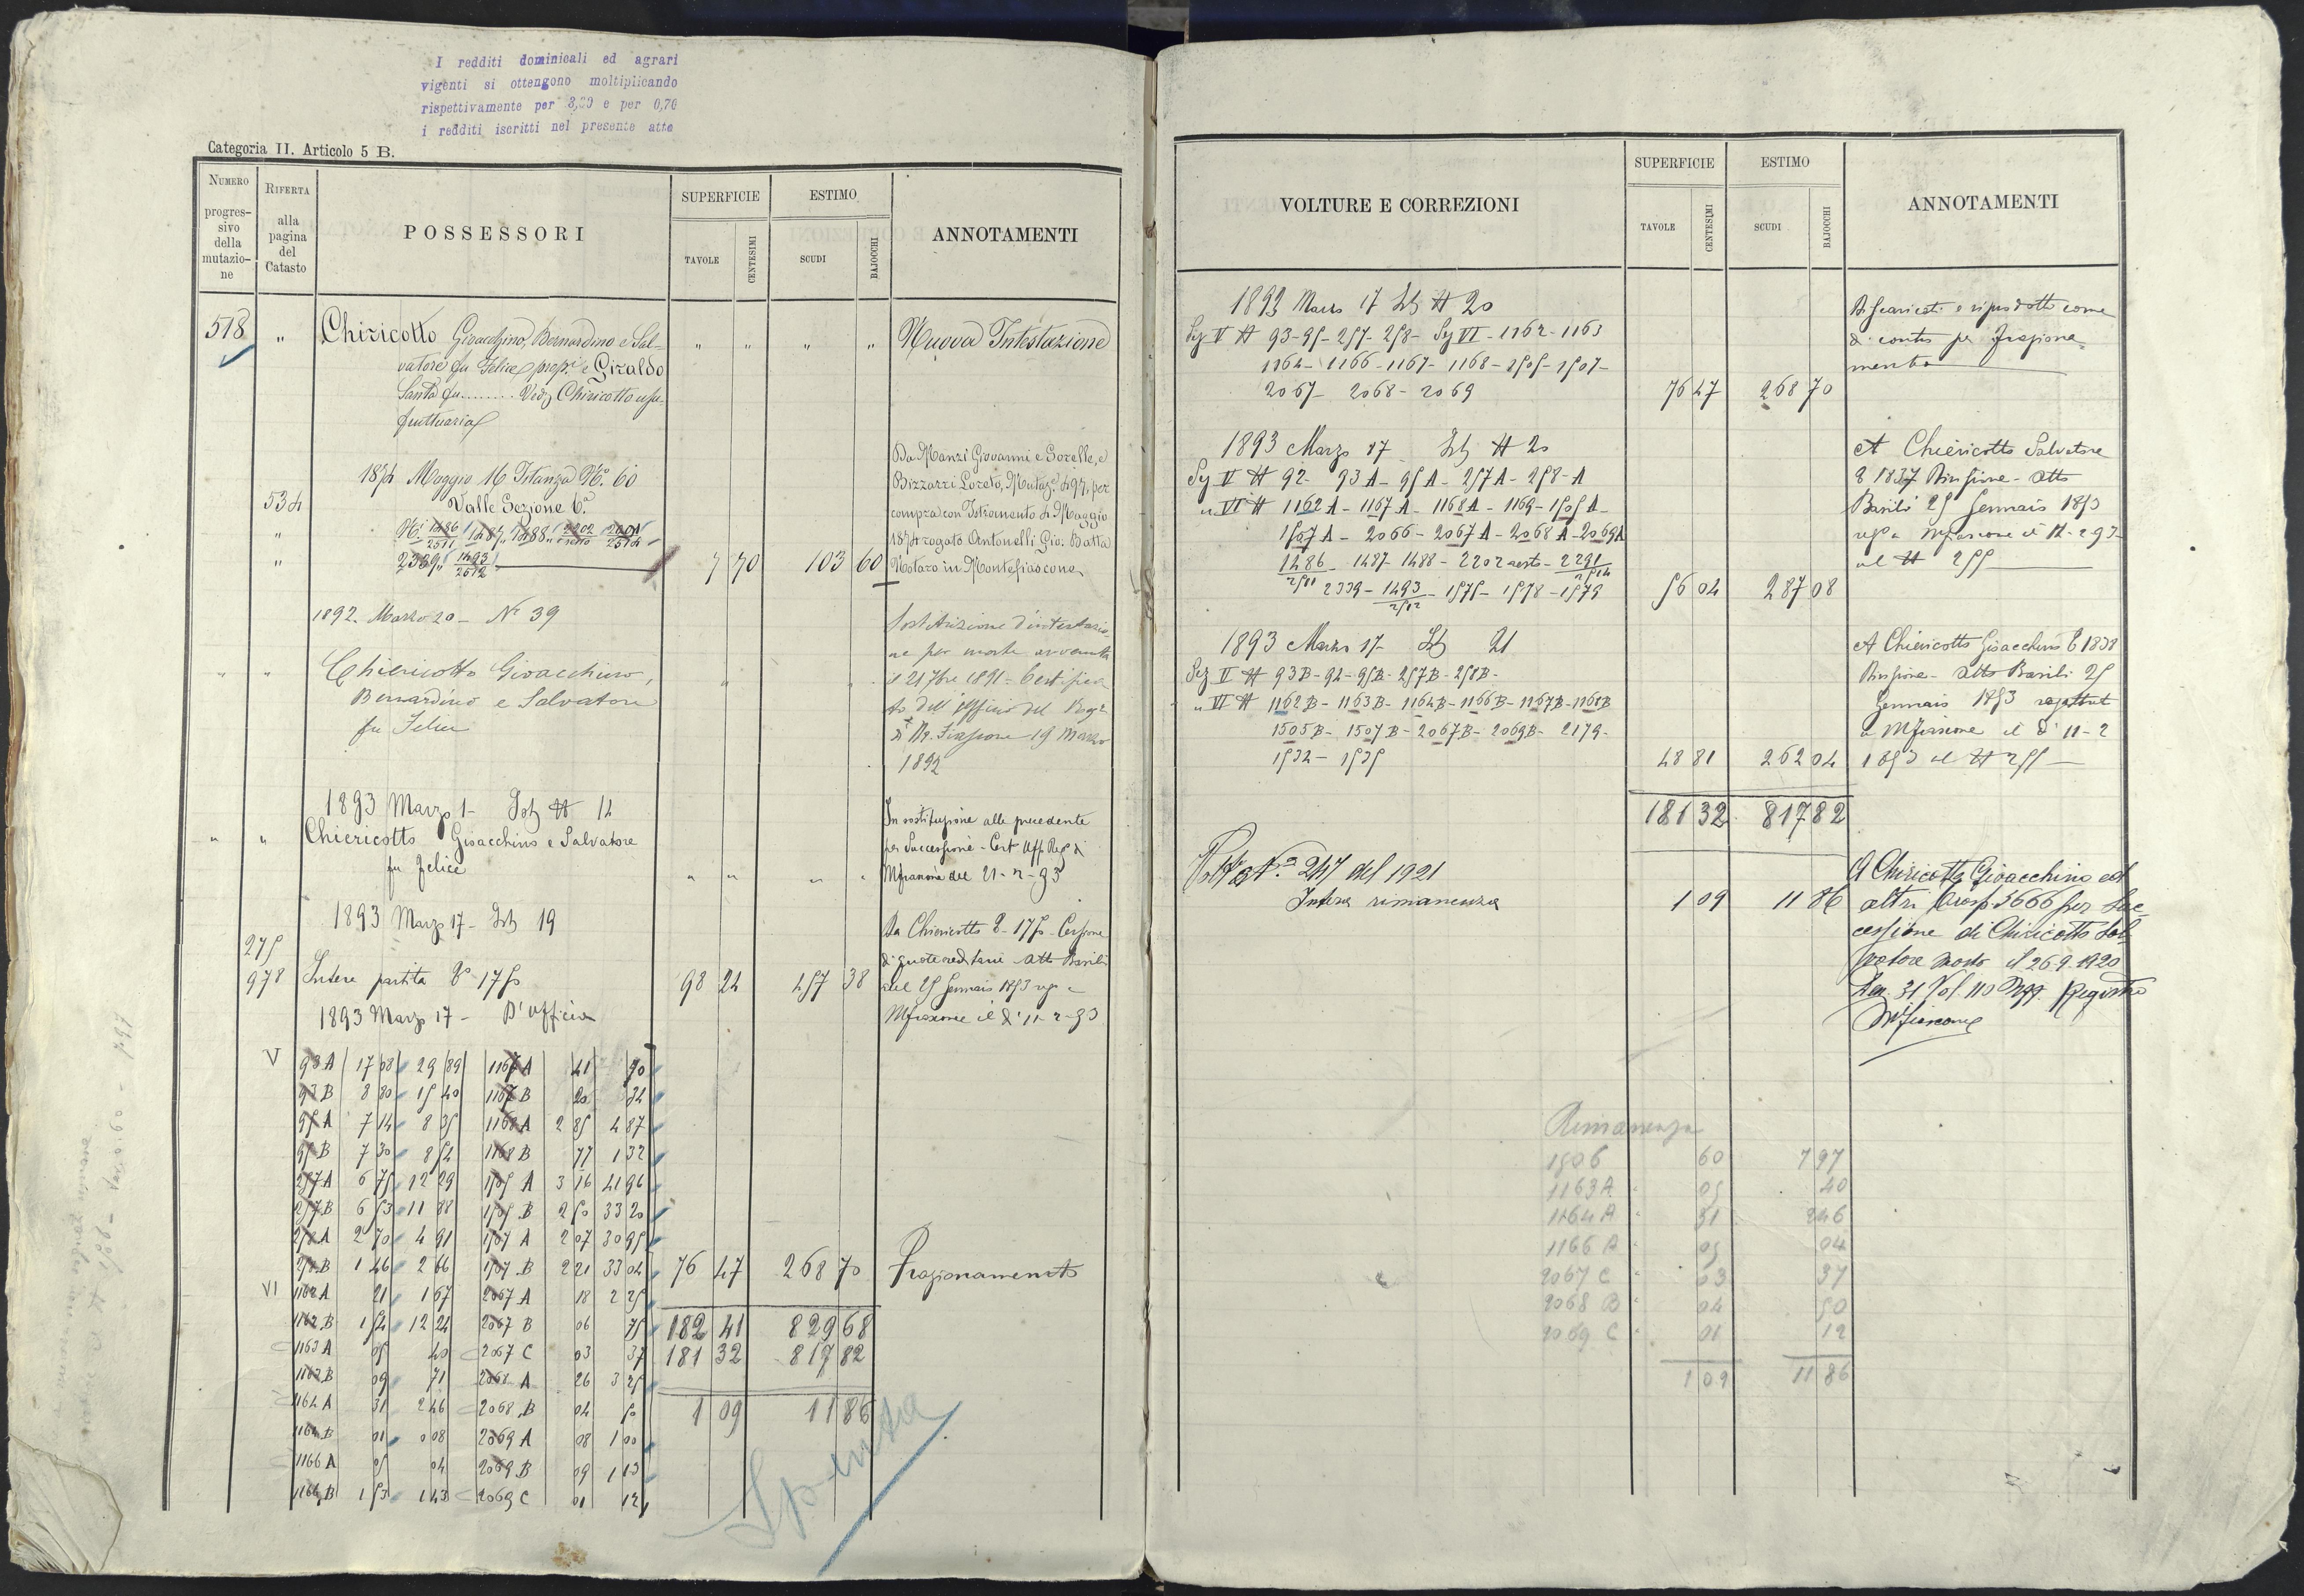 I redditi dominicali ed agrari
vigenti si ottengono moltiplicando
rispettivamente per 3, e per 0,70
i redditi iscritti nel presente atto
Categoria II. Articolo 5 B.
NUMERO progressivo della mutazione
RIFERTA alla pagina del Catasto
POSSESSORI
SUPERFICIE
TAVOLE
CENTESIMI
ESTIMO
SCUDI
BAJOCCHI
ANNOTAMENTI
518 " Chiricotto Gioacchino, Bernardino e Sal- " " " " Nuova Intestazione
vatore fu Felice prop.i e Giraldo
Santa fu ........ Ved. Chiricotto usu-
fruttuaria
Da Manzi Giovanni e Sorelle, e
1874 Maggio 16 Istanza N.o 60
Bizzarri Loreto, Mutaz.e 497, per
534 Valle Sezione 6.a
compra con Istromento 4 Maggio
" N.i 1486/2511, 1487, 1488, 2202 resto, 2291/2514
1874 rogato Antonelli Gio. Batta
" 2339, 1493/2512 7 70 103 60
Notaro in Montefiascone
1892. Marzo 20 - N.o 39
Sostituzione d'intestazio-
ne per morte avvenuta
" " Chiericotto Gioacchino,
il 21 7bre 1891 = Certifica
Bernardino e Salvatore
to dell'Officio del Reg.o
fu Felice
19 Marzo
1892
1893 Marzo 1 - Ist # 14
In sostituzione alla precedente
" " Chiericotto Gioacchino e Salvatore
per Successione - Cert Uff Reg di
fu Felice " " " "
Mfiascone del 21-2-93
1893 Marzo 17 - Ist 19
Da Chiericotto Cessione
275
di quote ereditarie Atto Basili
978 Intera partita 98 24 457 38
del 25 Gennaio 1893
1893 Marzo 17 - D'Ufficio
Mfiascone il dì 11-2-93
V 93 A 17 08 29 89 1167 A 41 70
93 B 8 80 15 40 1167 B 20 34
95 A 7 14 8 35 1168 A 2 85 4 87
95 B 7 30 8 54 1168 B 77 1 32
257 A 6 75 12 29 1505 A 3 16 41 96
257 B 6 53 11 88 1505 B 2 50 33 20
258 A 2 70 4 91 1507 A 2 07 30 95
258 B 1 46 2 66 1507 B 2 21 33 04 76 47 268 70 Frazionamento
VI 1162 A 21 1 67 2067 A 18 2 25
1162 B 1 54 12 24 2067 B 06 75 182 41 829 68
1163 A 05 40 2067 C 03 37 181 32 817 82
1163 B 09 71 2068 A 26 3 25
1164 A 31 2 46 2068 B 04 50 1 09 11 86
1164 B 01 008 2069 A 08 1 00
1166 A 05 04 2069 B 09 1 13
1166 B 1 53 1 43 2069 C 01 12
Spenta
VOLTURE E CORREZIONI
SUPERFICIE
TAVOLE
CENTESIMI
ESTIMO
SCUDI
BAJOCCHI
ANNOTAMENTI
1893 Marzo 17 Ist # 20
Discaricati e riprodotti come
Sez V # 93-95-257-258- Sez VI - 1162-1163
di contro per frazione
1164-1166-1167-1168-1505-1507-
mento
2067- 2068-2069 76 47 268 70
1893 Marzo 17 Ist # 20
A Chiericotto Salvatore
Sez V # 92- 93 A - 95 A - 257 A - 258-A
1837 Divisione - Atto
" VI # 1162 A - 1167 A - 1168 A - 1169 - 1505 A -
Basili 25 Gennaio 1893
1507 A - 2066 - 2067 A - 2068 A - 2069 A
1486/2511 - 1487 - 1488 - 2202 resto - 2291/2514
al # 255
2339 - 1493/2512 - 1575 - 1578 - 1579 56 04 287 08
1893 Marzo 17- Ist 21
A Chiericotto Gioacchino 1838
Sez V # 93 B - 94 - 95 B - 257 B - 258 B -
Divisione - Atto Basili 25
" VI # 1162 B - 1163 B - 1164 B - 1166 B - 1167 B - 1168 B
Gennaio 1893
1505 B - 1507 B - 2067 B - 2069 B - 2179 -
a Mfiascone il dì 11-2
1534 - 1535 48 81 262 04 1893 al # 255
181 32 817 82
247 del 1921
A Chiricotto Gioacchino ed
Intera rimanenza 1 09 11 86
altri 3666 per Suc-
cessione di Chiricotto Sal-
vatore morto il 26.9.1920
Den. 31 Vol. 110 Registro
Mfiascone
Rimanenza
1506 60 7 97
1163 A " 05 40
1164 A " 31 2 46
1166 A " 05 04
2067 C " 03 37
2068 B " 04 50
2069 C " 01 12
1 09 11 86